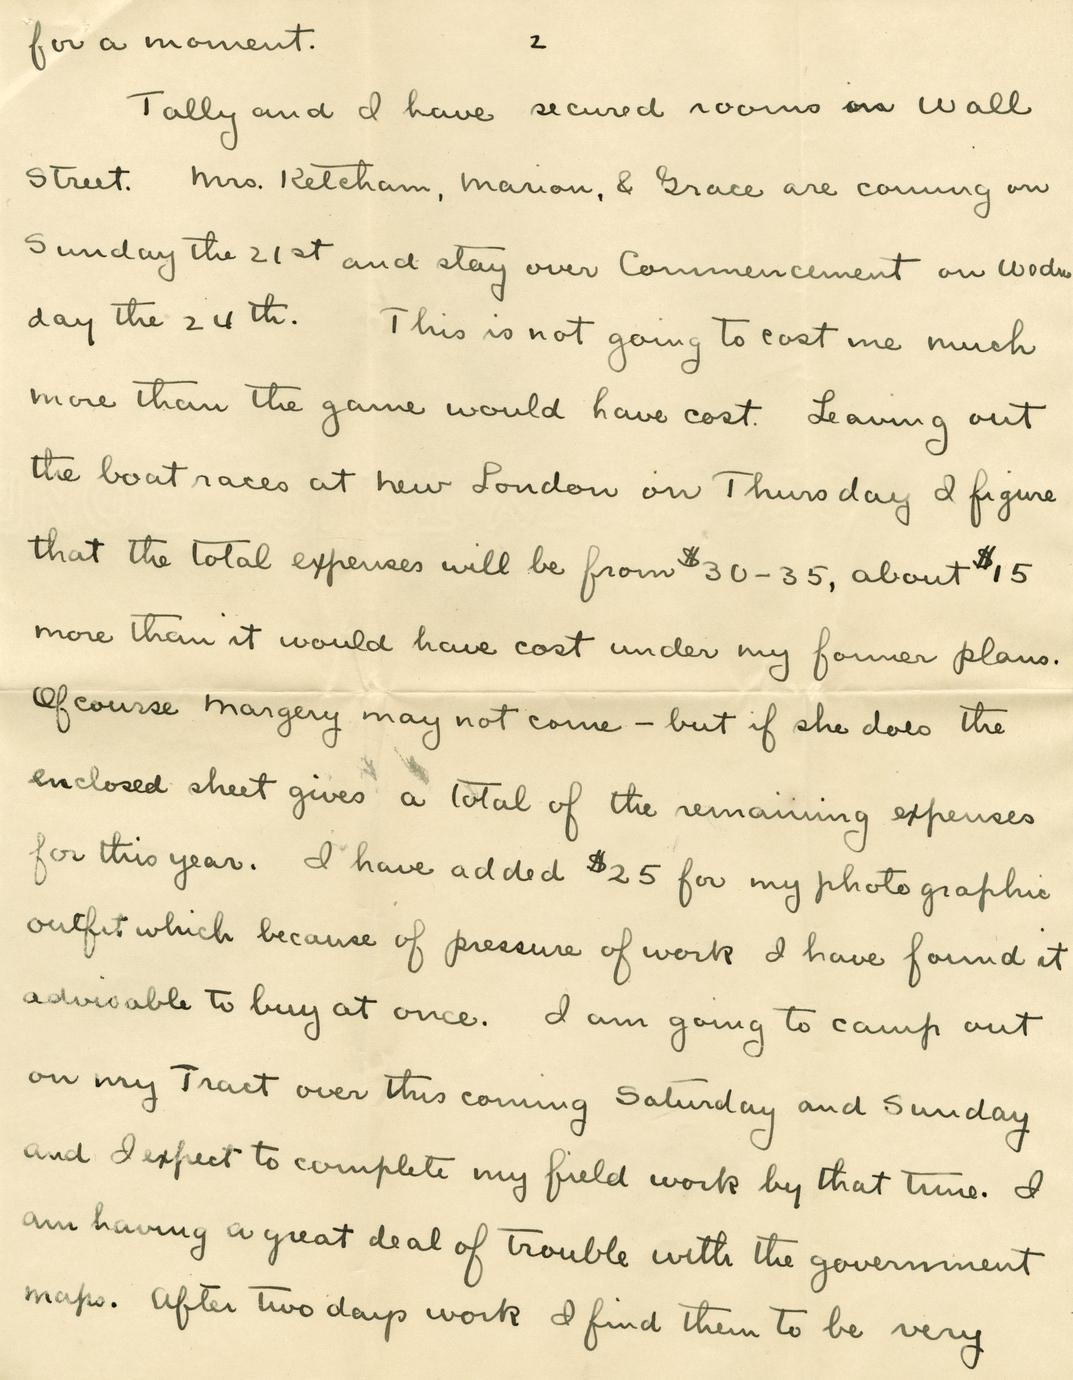 for a moment. 2
Tally and I have secured rooms on Wall
Street. Mrs. Ketcham, Marion, & Grace are coming on
Sunday the 21st and stay over Commencement on Wednes
day the 24th. This is not going to cost me much
more than the game would have cost. Leaving out
the boat races at New London on Thursday I figure
that the total expenses will be from $30-35, about $15
more than it would have cost under my former plans.
Of course Margery may not come - but if she does the
enclosed sheet gives a total of the remaining expenses
for this year. I have added $25 for my photographic
outfit which because of pressure of work I have found it
advisable to buy at once. I am going to camp out
on my Tract over this coming Saturday and Sunday
and I expect to complete my field work by that time. I
am having a great deal of trouble with the government
maps. After two days work I find them to be very